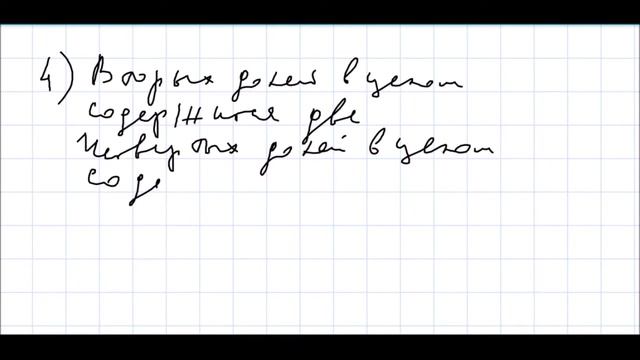 4) Вторых долей в целом
содержится две
Четвертых долей в целом
соде